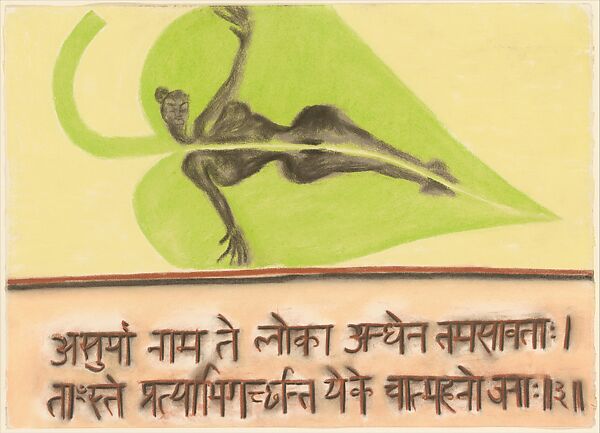 असुर्या नाम ते लोका अन्धेन तमसावृताः।
ताँस्ते प्रत्याभिगच्छन्ति येके चात्महनो जनाः॥३॥